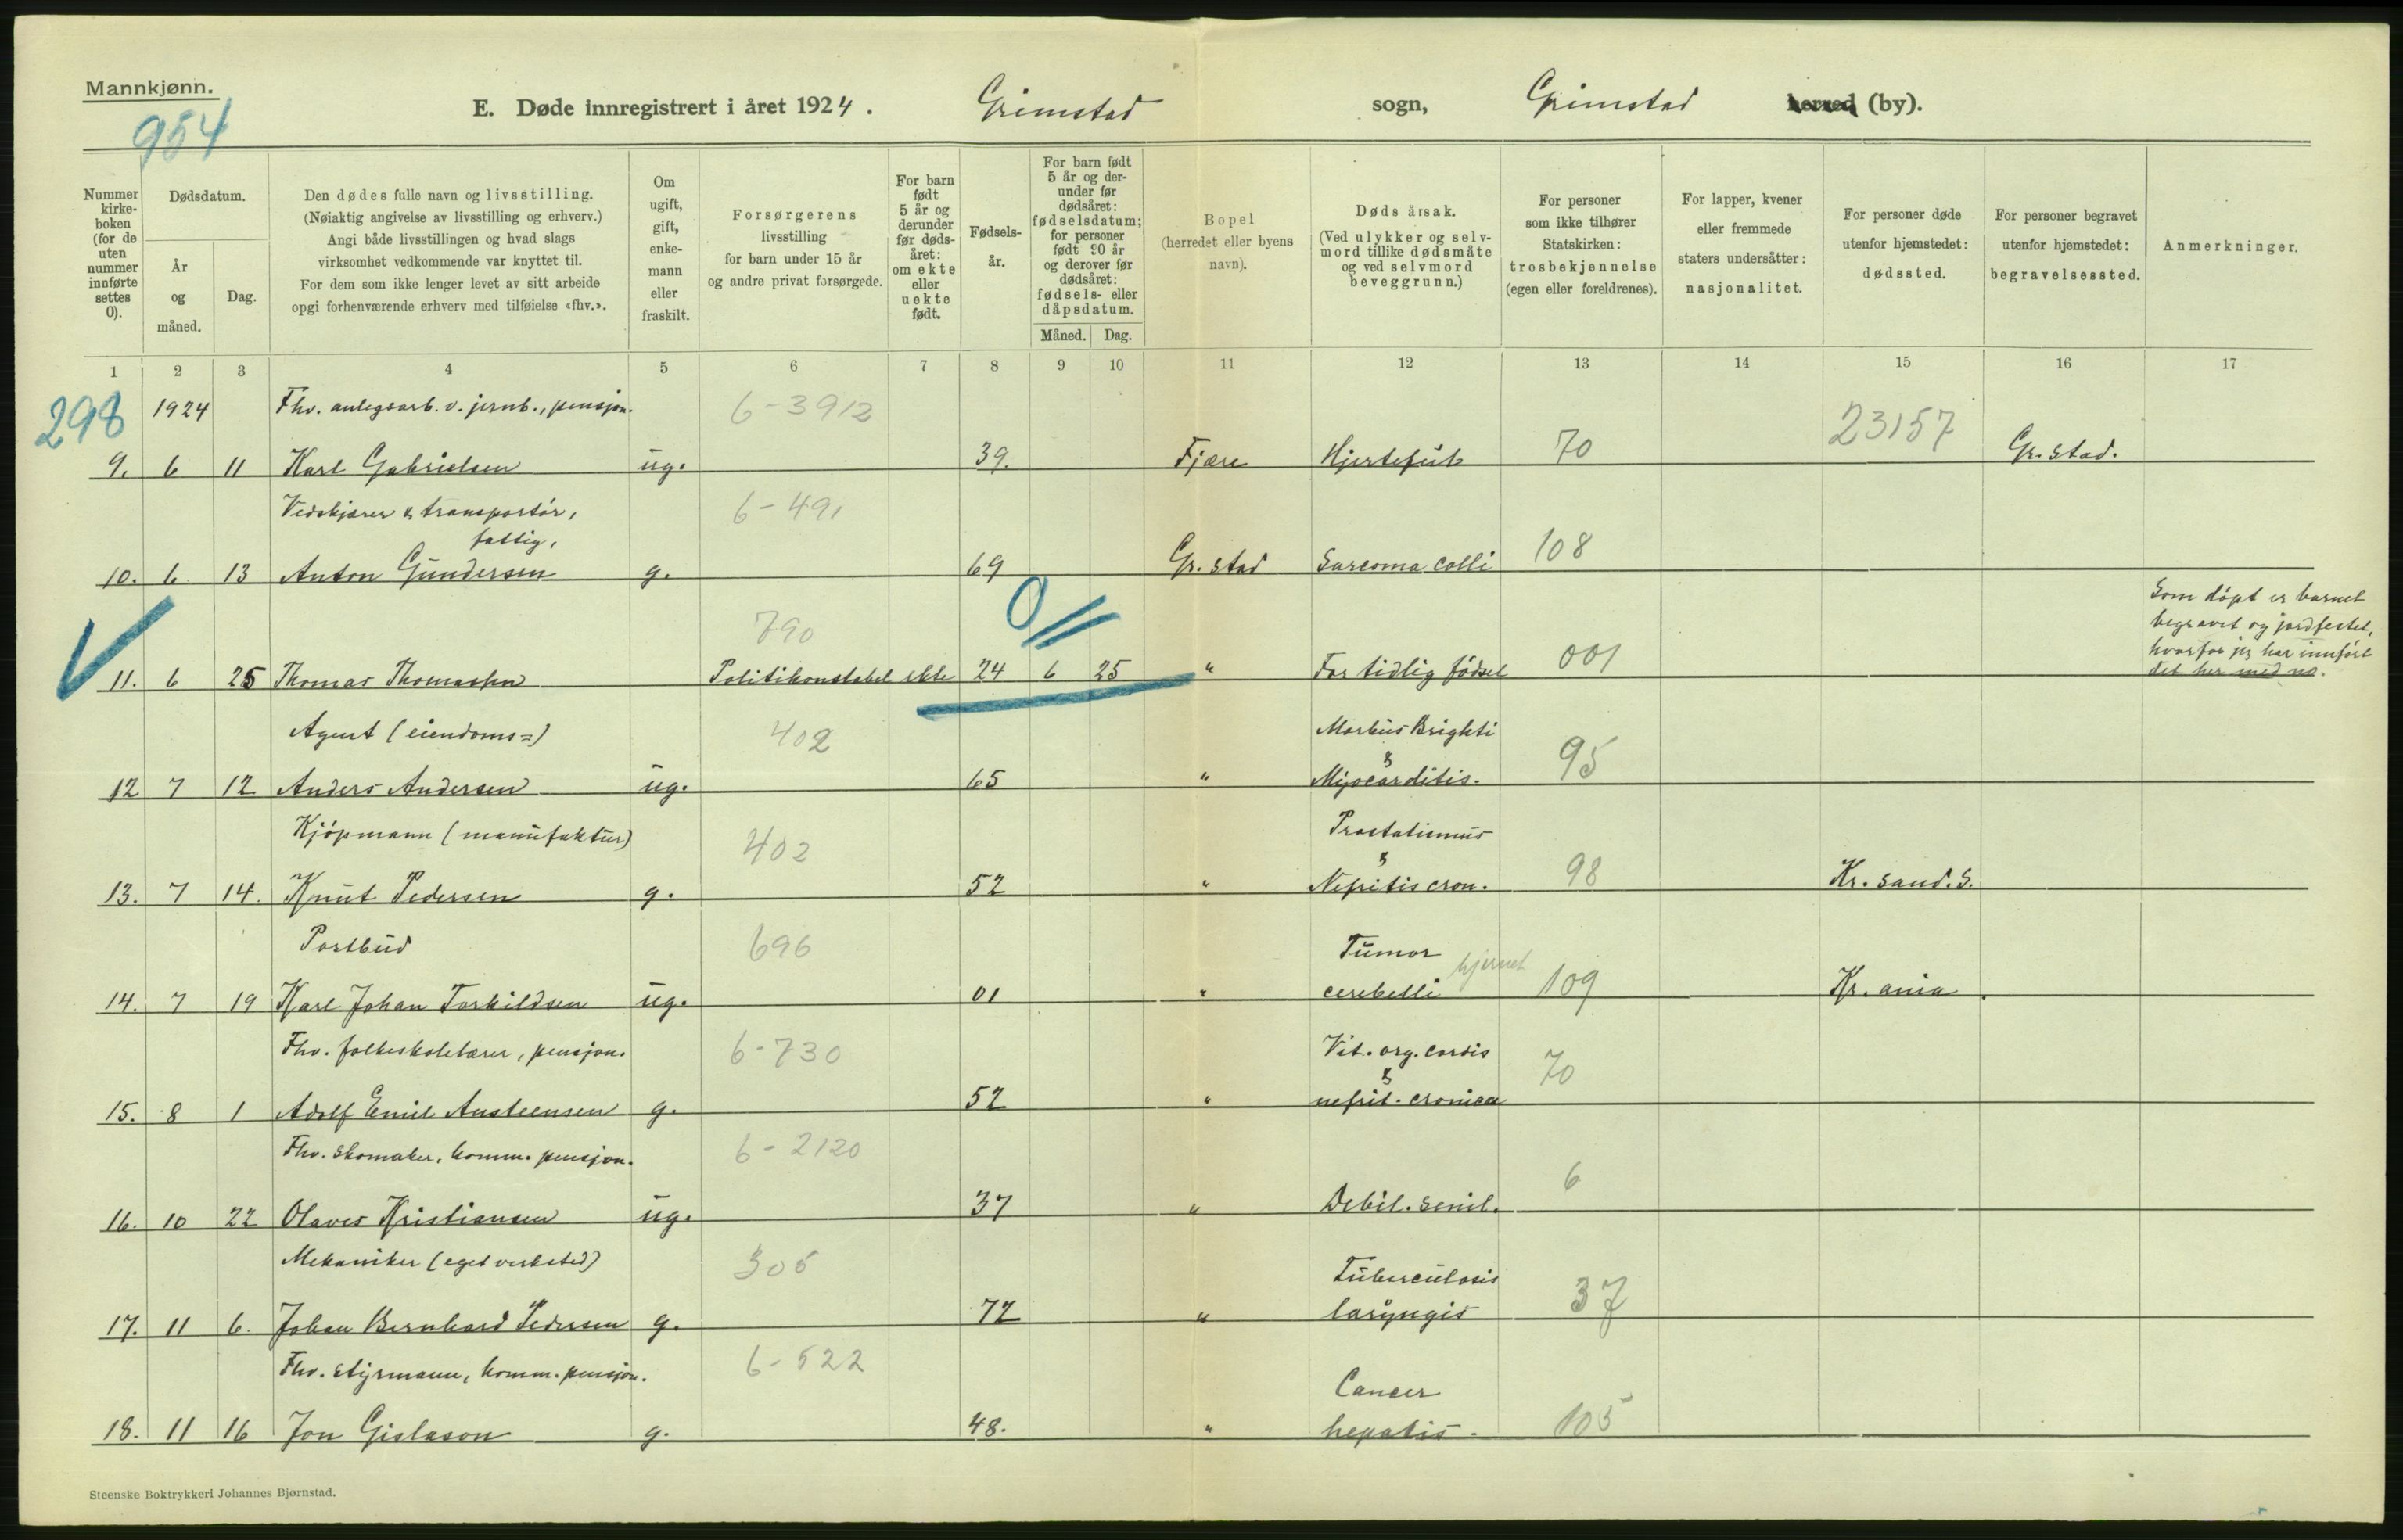 Mannkjønn.
954
E. Døde innregistrert i året 1924. Grimstad sogn, Grimstad herred (by).
Nummer kirke-boken (for de uten nummer innførte settes 0).
Dødsdatum.
År og måned.
Dag.
Den dødes fulle navn og livsstilling.
(Nøiaktig angivelse av livsstilling og erhverv.)
Angi både livsstillingen og hvad slags
virksomhet vedkommende var knyttet til.
For dem som ikke lenger levet av sitt arbeide
opgi forhenværende erhverv med tilføielse «fhv.».
Om ugift, gift, enke-mann eller fraskilt.
Forsørgerens
livsstilling
for barn under 15 år
og andre privat forsørgede.
For barn født 5 år og derunder før døds-året: om ekte eller uekte født.
Fødsels-år.
For barn født 5 år og der-under før dødsåret: fødselsdatum; for personer født 90 år og derover før dødsåret: fødsels- eller dåpsdatum.
Måned. Dag.
Bopel
(herredet eller byens
navn).
Dødsårsak.
(Ved ulykker og selv-
mord tillike dødsmåte
og ved selvmord
beveggrunn.)
For personer
som ikke tilhører
Statskirken:
trosbekjennelse
(egen eller foreldrenes).
For lapper, kvener
eller fremmede
staters undersåtter:
nasjonalitet.
For personer døde
utenfor hjemstedet:
dødssted.
For personer begravet
utenfor hjemstedet:
begravelsessted.
Anmerkninger.
1 2 3 4 5 6 7 8 9 10 11 12 13 14 15 16 17
298 1924 Fhv. anlegsarb. v. jernb., pensjon. 6-3912 23157
9. 6 11 Karl Gabrielsen ug. 39. Fjære Hjertefeil 70 Gr.stad.
Vedskjærer & transportør, 6-491
fattig,
10. 6 13 Anton Gundersen g. 69 Gr.stad Sarcoma colli 108
790 0//
Som døpt er barnet
begravet og jordfestet,
hvorfor jeg har innført
det her med no.
11. 6 25 Thomas Thomassen Politikonstabel ekte 24 6 25 " For tidlig fødsel 001
Agent (eiendoms=) 402 Morbus Brighti
&
12 7 12 Anders Andersen ug. 65 " Myocarditis. 95
Kjøpmann (manufaktur) 402 Prostatismus
&
13. 7 14. Knut Pedersen g. 52 " Nefritis cron. 98 Kr.sand.S.
Postbud 696 Tumor
14. 7 19 Karl Johan Torkildsen ug. 01 " cerebelli 109 Kr.ania
Fhv. folkeskolelærer, pensjon. 6-730 Vit. org. cordis
&
15. 8 1 Adolf Emil Austeensen g. 52 " nefrit. cronica 70
Fhv. skomaker, komm. pensjon. 6-2120
16. 10 22 Olaves Kristiansen ug. 37 " Debil. senil. 6
Mekaniker (eget verksted) 305 Tuberculosis
17. 11 6. Johan Bernhard Pedersen g. 72 " laryngis 37
Fhv. styrmann, komm. pensjon. 6-522 Cancer
18. 11 16 Jon Gislason g. 48. " hepatis. 105
Steenske Boktrykkeri Johannes Bjørnstad.